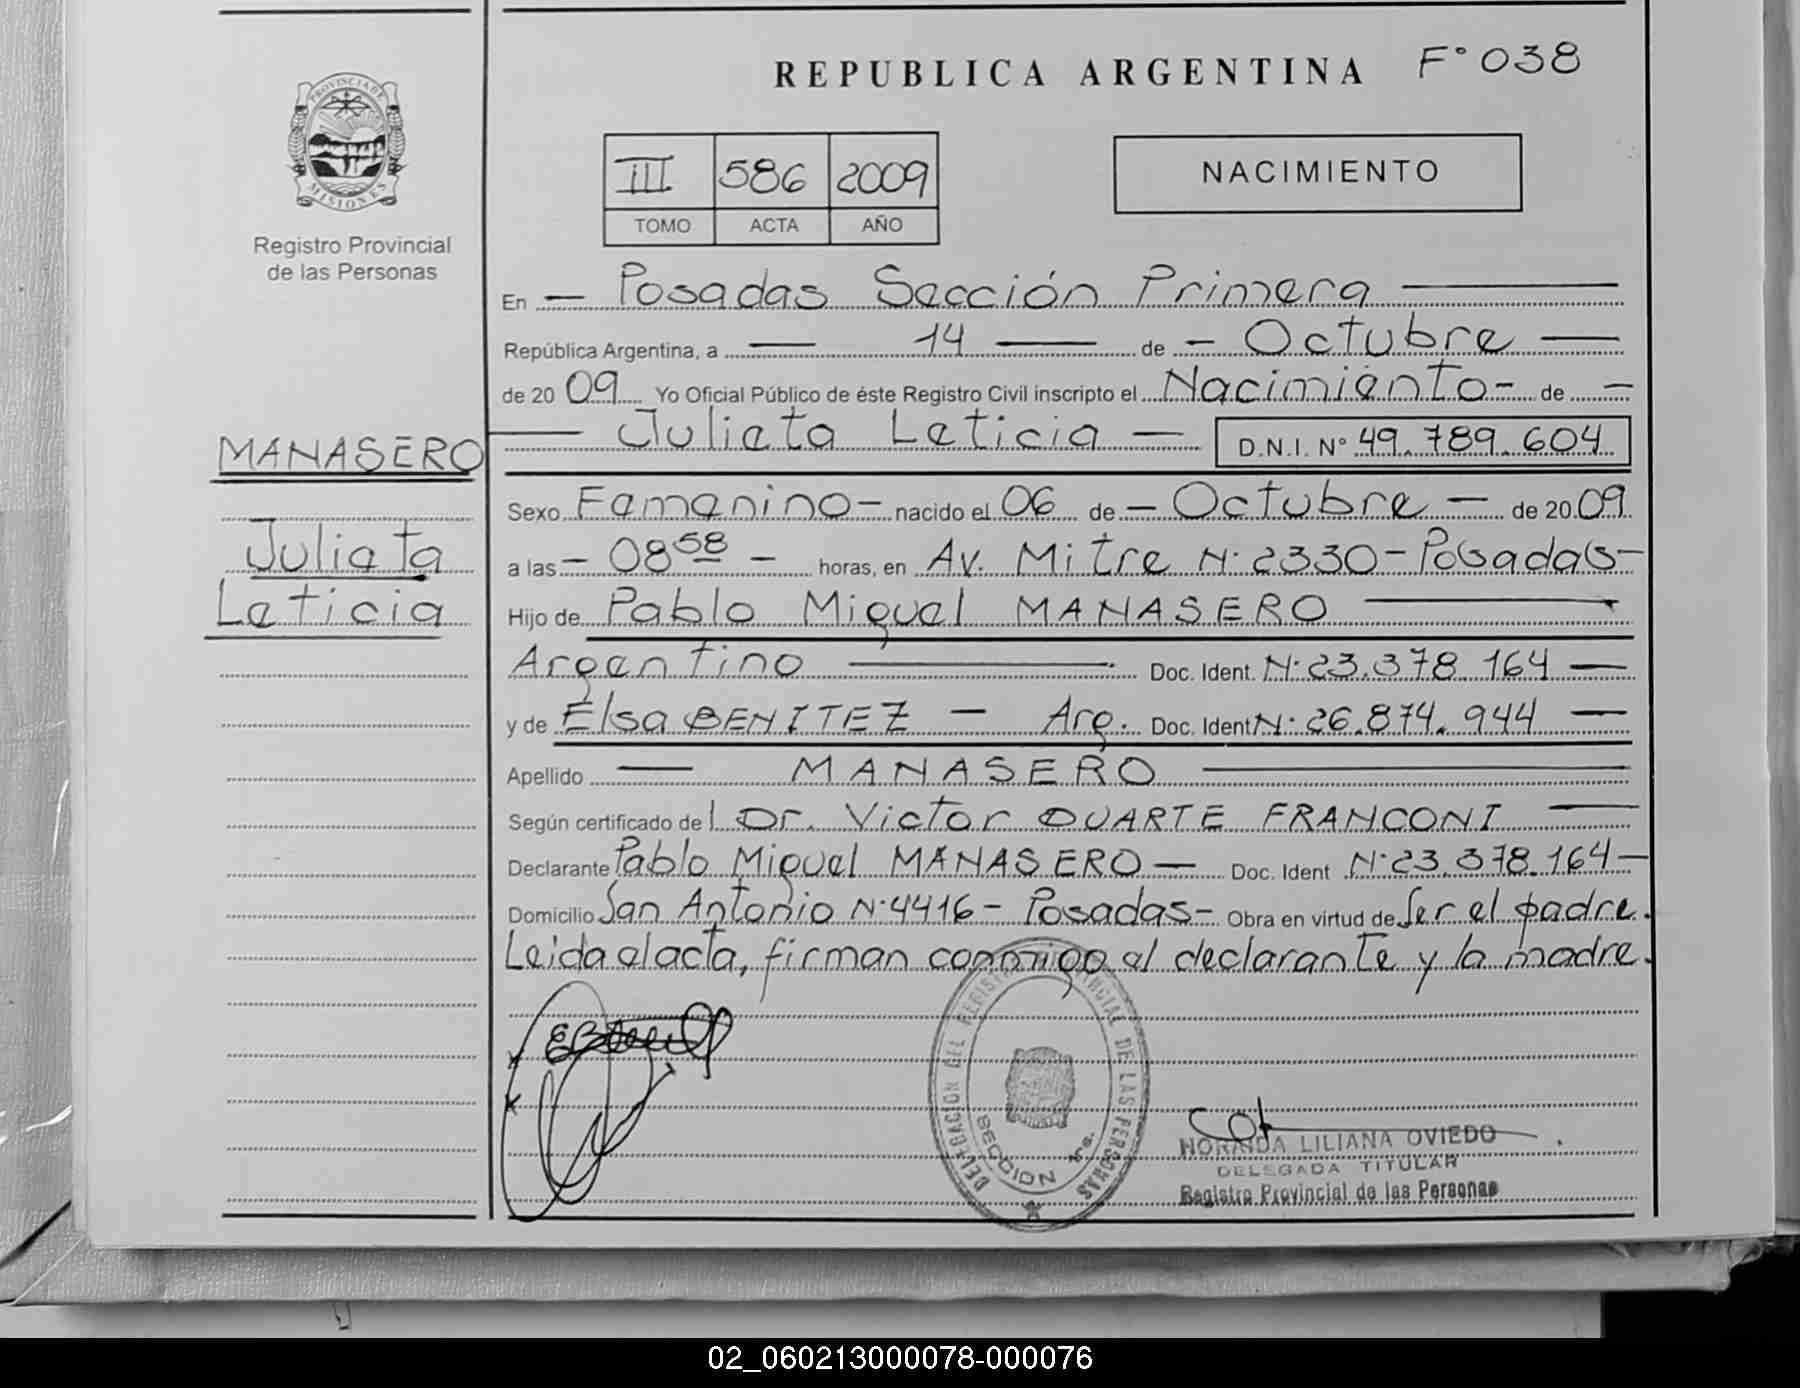 REPUBLICA ARGENTINA F° 038
PROVINCIA DE
MISIONES
Registro Provincial
de las Personas
III 586 2009
TOMO ACTA AÑO
NACIMIENTO
En — Posadas Sección Primera —
República Argentina, a — 14 — de — Octubre —
de 20 09 Yo Oficial Público de éste Registro Civil inscripto el Nacimiento - de —
— Julieta Leticia — D.N.I. N° 49.789.604
MANASERO
Julieta
Leticia
Sexo Femenino - nacido el 06 de — Octubre — de 20 09
a las — 08 58 — horas, en Av. Mitre N° 2330 - Posadas -
Hijo de Pablo Miguel MANASERO —
Argentino — Doc. Ident. N° 23.378.164 —
y de Elsa BENITEZ — Arg. Doc. Ident N° 26.874.944 —
Apellido — MANASERO —
Según certificado del Dr. Victor DUARTE FRANCONI —
Declarante Pablo Miguel MANASERO — Doc. Ident N° 23.378.164 —
Domicilio San Antonio N° 4416 - Posadas - Obra en virtud de Ser el padre.
Leida el acta, firman conmigo el declarante y la madre.
DELEGACION DEL REGISTRO PROVINCIAL DE LAS PERSONAS
SECCION 1ra.
LILIANA OVIEDO
DELEGADA TITULAR
Registro Provincial de las Personas
02_060213000078-000076